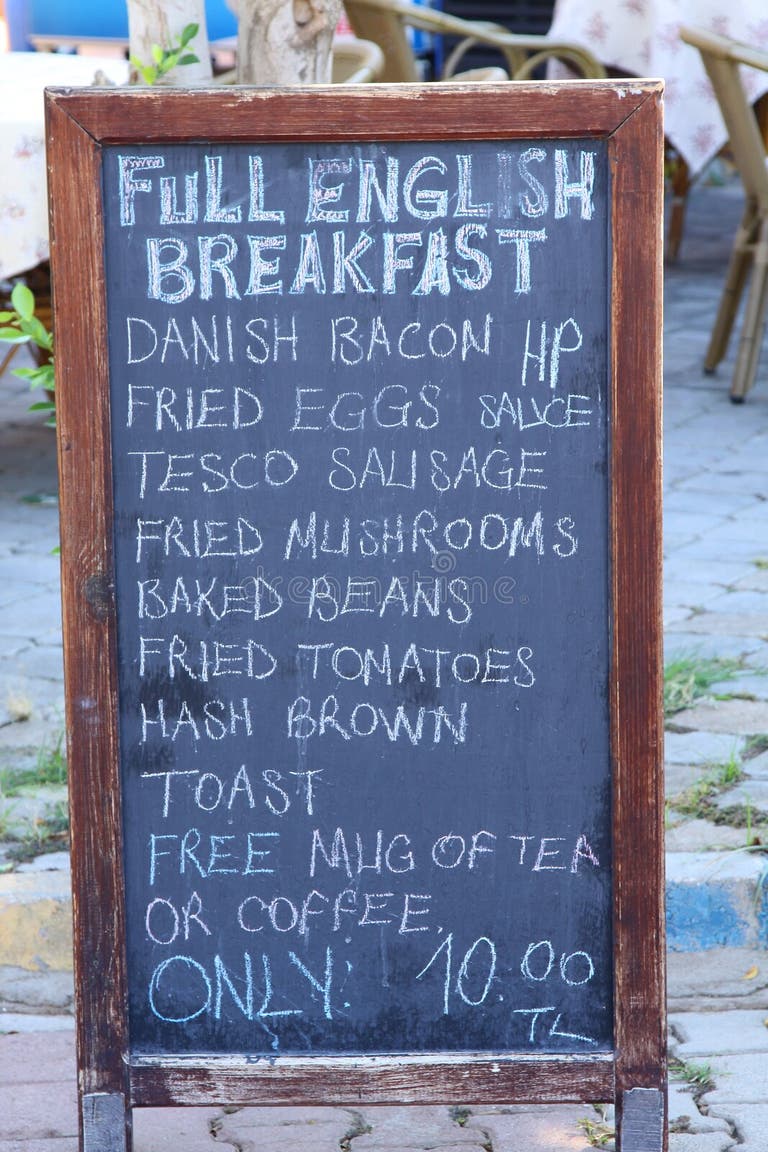 FULL ENGLISH
BREAKFAST
DANISH BACON HP
FRIED EGGS SAUCE
TESCO SAUSAGE
FRIED MUSHROOMS
BAKED BEANS
FRIED TOMATOES
HASH BROWN
TOAST
FREE MUG OF TEA
OR COFFEE.
ONLY: 10.00
TL
dreamstime.com